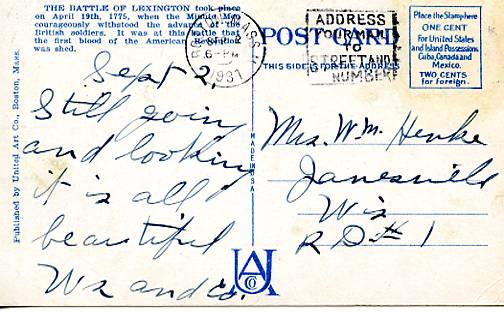 THE BATTLE OF LEXINGTON took place
on April 19th, 1775, when the Minute Men
courageously withstood the advance of the
British soldiers. It was at this battle that
the first blood of the American Revolution
was shed.
MASS.
SEP 2
6-PM
1931
ADDRESS
YOUR MAIL
TO
STREET AND
NUMBER
POST CARD
THIS SIDE IS FOR THE ADDRESS
Place the Stamp here
ONE CENT
For United States
and Island Possessions
Cuba, Canada and
Mexico.
TWO CENTS
for Foreign.
Published by United Art Co., Boston, Mass.
MADE IN USA
Sept 2,
Still going
and looking
it is all
beautiful
Wz and Co.
Mrs. Wm. Henke
Janesville
Wis
R D # 1
UA
CO